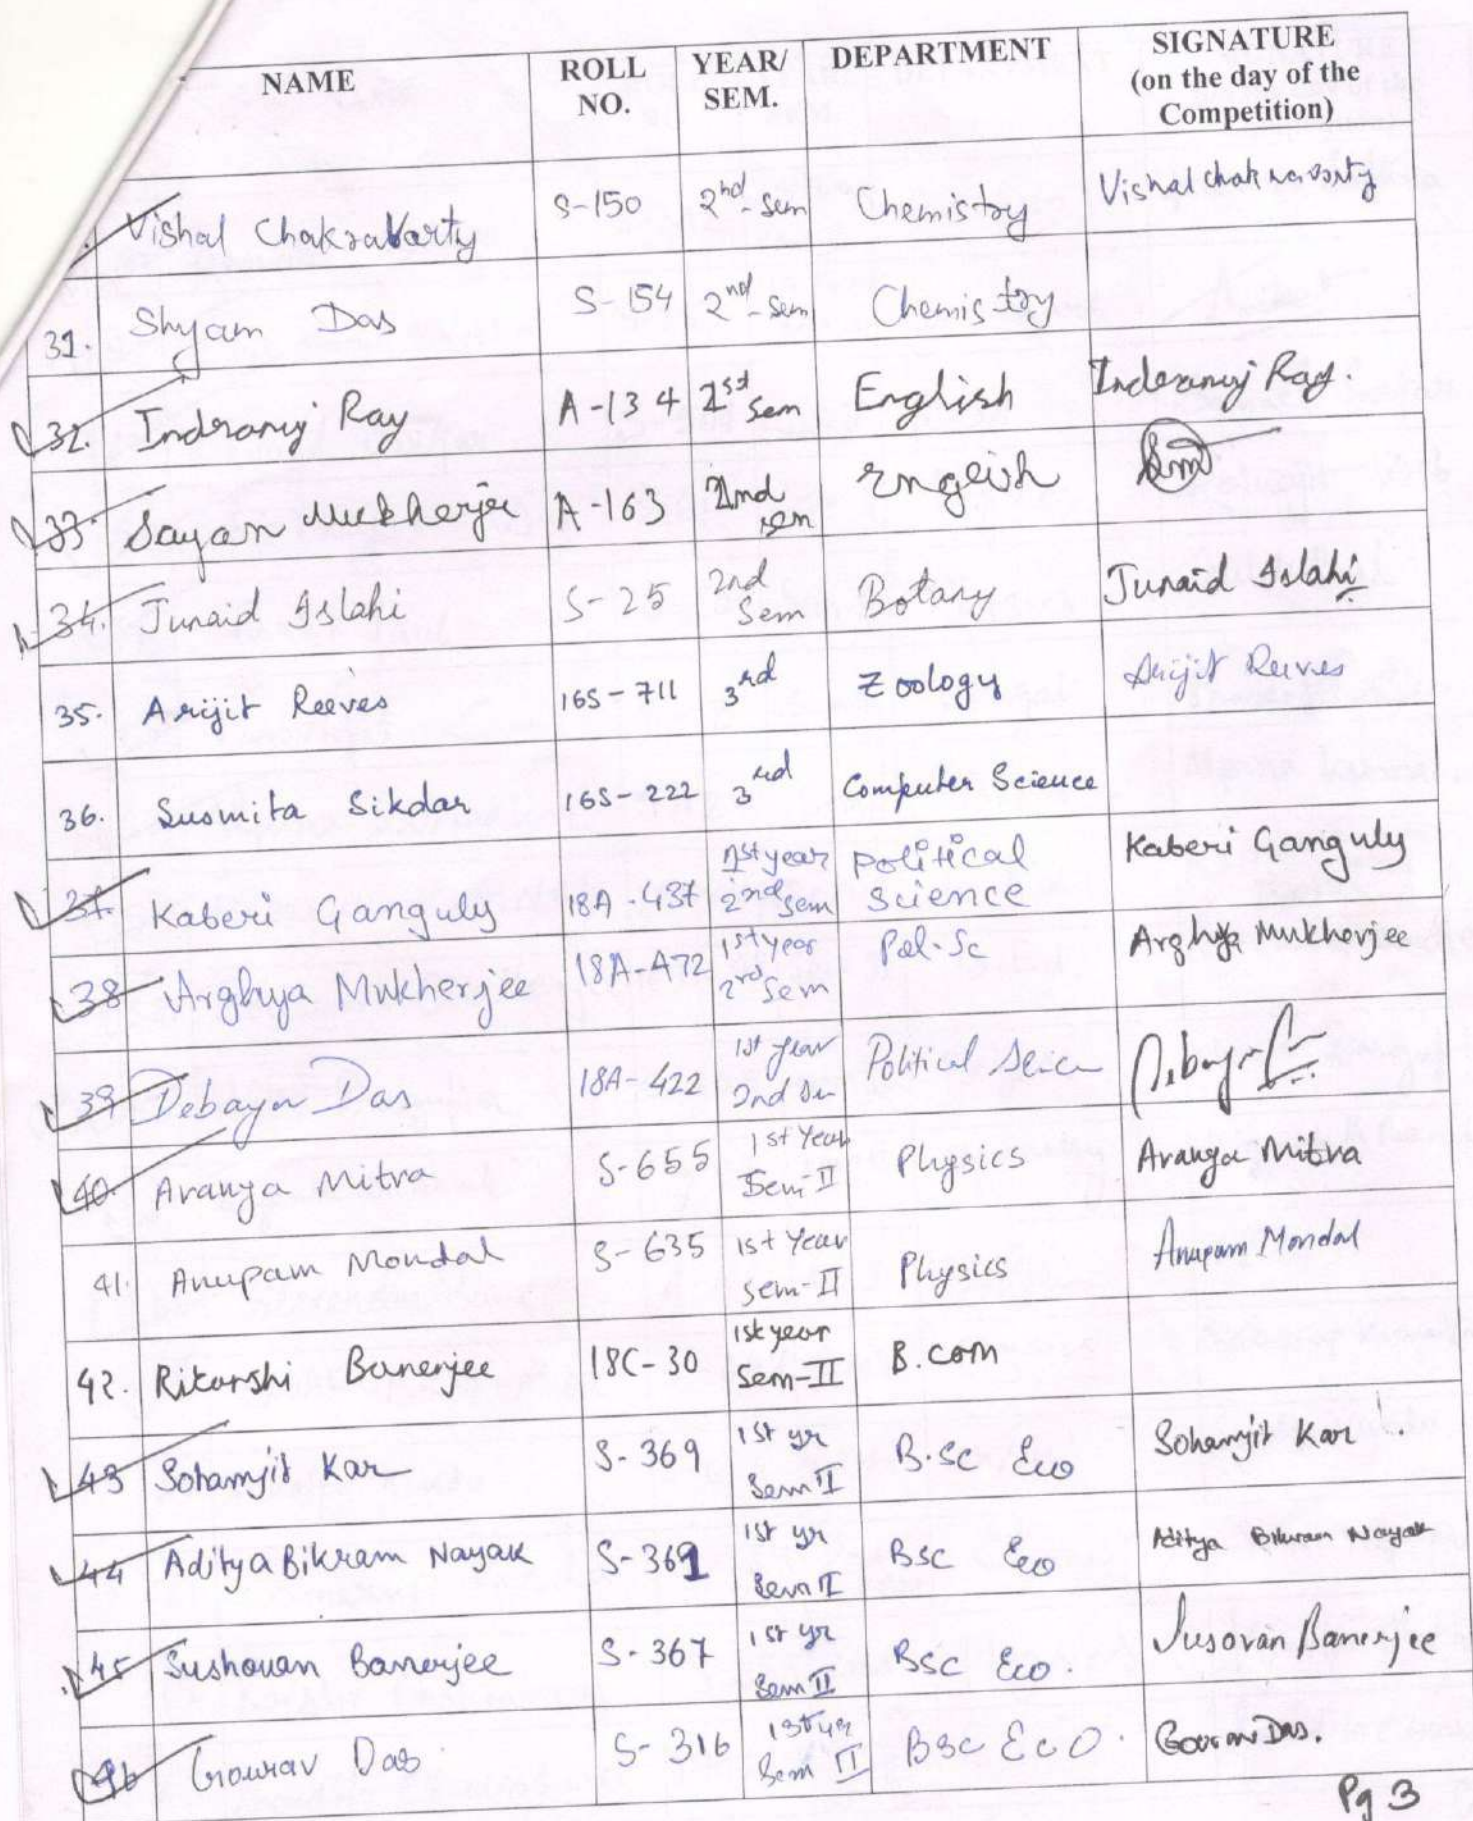 NAME ROLL NO. YEAR/ SEM. DEPARTMENT SIGNATURE (on the day of the Competition)
Vishal Chakrabarty S-150 2nd - sem Chemistry Vishal chakravorty
31. Shyam Das S-154 2nd - sem Chemistry
32. Indranuj Ray A-134 2st sem English Indranuj Ray.
33. Sayan Mukherjee A-163 2nd sem English
34. Junaid Islahi S-25 2nd Sem Botany Junaid Islahi
35. Arijit Reeves 16S-711 3rd Zoology Arijit Reeves
36. Susmita Sikdar 16S-222 3rd Computer Science
37. Kaberi Ganguly 18A-437 1st year 2nd sem Political Science Kaberi Ganguly
38 Arghya Mukherjee 18A-472 1st year 2rd Sem Pol-Sc Arghya Mukherjee
39 Debayan Das 18A-422 1st year 2nd Political
40. Aranya Mitra S-655 1st Year Sem-II Physics Aranya Mitra
41. Anupam Mondal S-635 1st Year sem-II Physics Anupam Mondal
42. Ritarshi Banerjee 18C-30 1st year Sem-II B.com
43 Sohamjit Kar S-369 1st yr Sem II B.Sc Eco Sohamjit Kar
44 Aditya Bikram Nayak S-361 1st yr Sem II BSC Eco Aditya Bikram Nayak
45 Sushovan Banerjee S-367 1st yr Sem II BSC Eco. Susovan Banerjee
46 Gourav Das S-316 1st yr Sem II BSC ECO. Gourav Das.
Pg 3